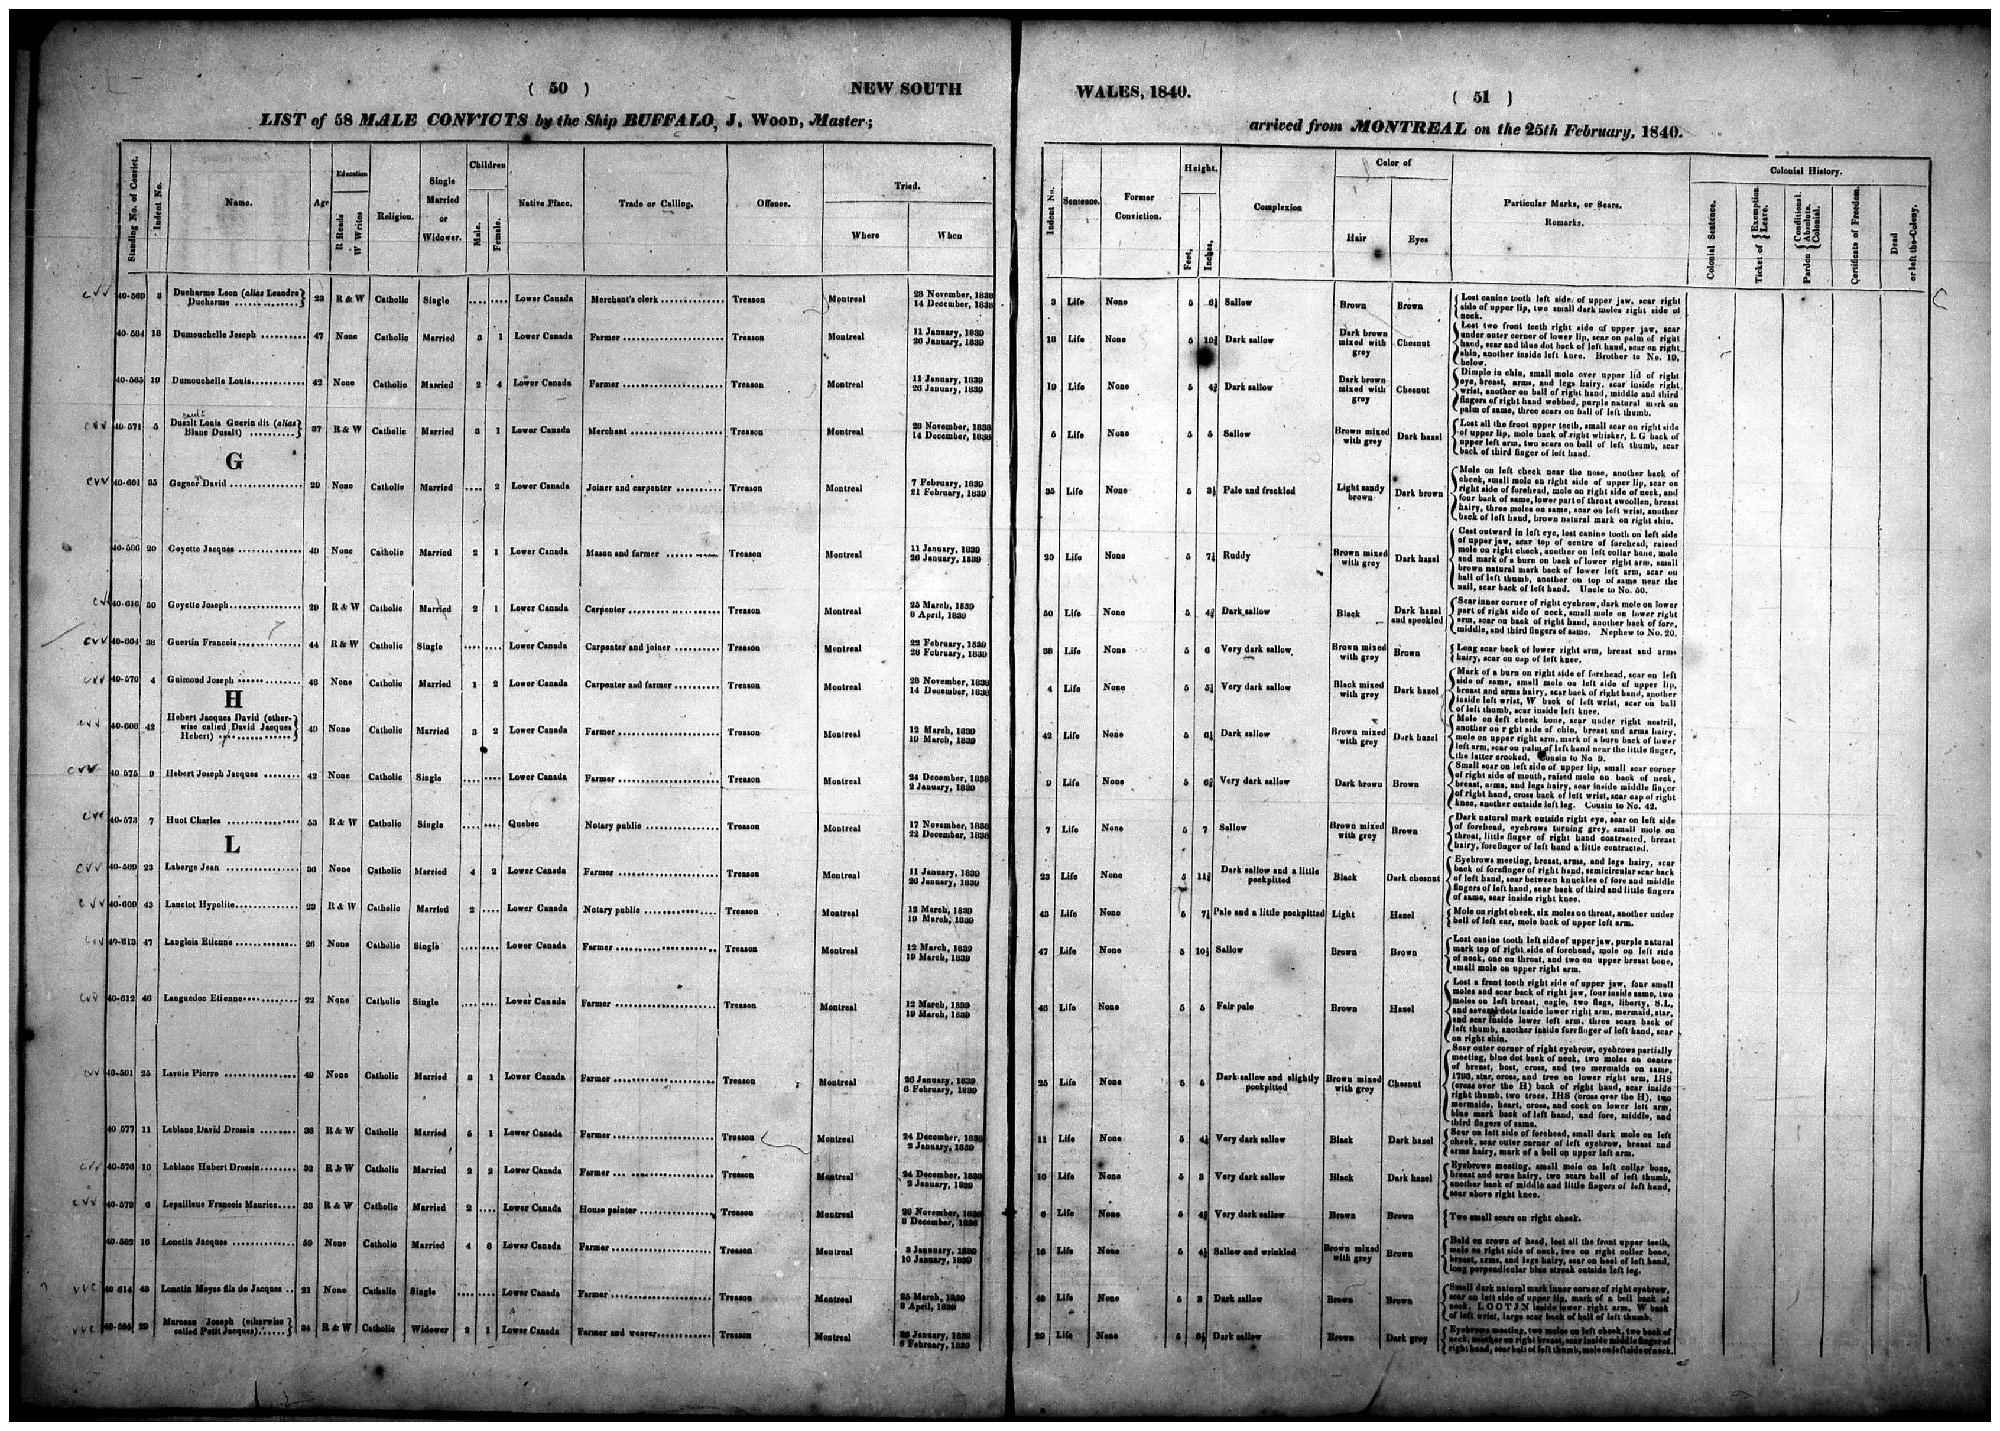 ( 50 ) NEW SOUTH
LIST of 58 MALE CONVICTS by the Ship BUFFALO, J. WOOD, Master;
Standing No. of Convict. Indent No. Name. Education R Reads W Writes Age Religion. Single Married or Widower. Children Male. Female. Native Place. Trade or Calling. Offence. Tried. Where When
40-569 3 Ducharme Leon (alias Leandre Ducharme 23 R & W Catholic Single Lower Canada Merchant's clerk Treason Montreal 28 November, 1838
14 December, 1838
40-584 18 Dumouchelle Joseph 47 None Catholic Married 3 1 Lower Canada Farmer Treason Montreal 11 January, 1839
26 January, 1839
40-585 19 Dumouchelle Louis 42 None Catholic Married 2 4 Lower Canada Farmer Treason Montreal 11 January, 1839
26 January, 1839
40-571 5 Dusalt Louis Guerin dit (alias Blanc Dusalt) 37 R & W Catholic Married 3 1 Lower Canada Merchant Treason Montreal 28 November, 1838
14 December, 1838
G
40-601 35 Gagner David 29 None Catholic Married 2 Lower Canada Joiner and carpenter Treason Montreal 7 February, 1839
21 February, 1839
40-586 20 Goyette Jacques 49 None Catholic Married 2 1 Lower Canada Mason and farmer Treason Montreal 11 January, 1839
26 January, 1839
40-616 50 Goyette Joseph 29 R & W Catholic Married 2 1 Lower Canada Carpenter Treason Montreal 25 March, 1839
8 April, 1839
40-604 38 Guertin Francois 44 R & W Catholic Single Lower Canada Carpenter and joiner Treason Montreal 22 February, 1839
28 February, 1839
40-570 4 Guimond Joseph 48 None Catholic Married 1 2 Lower Canada Carpenter and farmer Treason Montreal 28 November, 1838
14 December, 1838
H
40-608 42 Hebert Jacques David (otherwise called David Jacques Hebert) 49 None Catholic Married 3 2 Lower Canada Farmer Treason Montreal 12 March, 1839
19 March, 1839
40-575 9 Hebert Joseph Jacques 42 None Catholic Single Lower Canada Farmer Treason Montreal 24 December, 1838
2 January, 1839
40-573 7 Huot Charles 53 R & W Catholic Single Quebec Notary public Treason Montreal 17 November, 1838
22 December, 1838
L
40-589 23 Laberge Jean 36 None Catholic Married 4 2 Lower Canada Farmer Treason Montreal 11 January, 1839
26 January, 1839
40-609 43 Lanctot Hypolite 23 R & W Catholic Married 2 Lower Canada Notary public Treason Montreal 12 March, 1839
19 March, 1839
40-613 47 Langlois Etienne 26 None Catholic Single Lower Canada Farmer Treason Montreal 12 March, 1839
19 March, 1839
40-612 46 Languedoc Etienne 22 None Catholic Single Lower Canada Farmer Treason Montreal 12 March, 1839
19 March, 1839
40-591 25 Lavoie Pierre 49 None Catholic Married 8 1 Lower Canada Farmer Treason Montreal 26 January, 1839
6 February, 1839
40-577 11 Leblanc David Drossin 36 R & W Catholic Married 5 1 Lower Canada Farmer Treason Montreal 24 December, 1838
2 January, 1839
40-576 10 Leblanc Hubert Drossin 32 R & W Catholic Married 2 2 Lower Canada Farmer Treason Montreal 24 December, 1838
2 January, 1839
40-572 6 Lepailleur Francois Maurice 33 R & W Catholic Married 2 Lower Canada House painter Treason Montreal 26 November, 1838
8 December, 1838
40-582 16 Lonctin Jacques 59 None Catholic Married 4 6 Lower Canada Farmer Treason Montreal 3 January, 1839
10 January, 1839
40-614 48 Lonctin Moyse fils de Jacques 21 None Catholic Single Lower Canada Farmer Treason Montreal 25 March, 1839
8 April, 1839
40-595 29 Marceau Joseph (otherwise called Petit Jacques) 34 R & W Catholic Widower 2 1 Lower Canada Farmer and weaver Treason Montreal 26 January, 1839
6 February, 1839
WALES, 1840. ( 51 )
arrived from MONTREAL on the 25th February, 1840.
Indent No. Sentence. Former Conviction. Height. Feet, Inches, Complexion Color of Hair Eyes Particular Marks, or Scars. Remarks. Colonial History. Colonial Sentence. Ticket of Exemption Leave. Pardon Conditional Absolute. Colonial. Certificate of Freedom. Dead or left the Colony.
3 Life None 5 Sallow Brown Brown Lost canine tooth left side of upper jaw, scar right
side of upper lip, two small dark moles right side of
neck.
18 Life None 5 Dark sallow Dark brown mixed with grey Chesnut Lost two front teeth right side of upper jaw, scar
under outer corner of lower lip, scar on palm of right
hand, scar and blue dot back of left hand, scar on right
shin, another inside left knee. Brother to No. 19,
below.
19 Life None 5 Dark sallow Dark brown mixed with grey Chesnut Dimple in chin, small mole over upper lid of right
eye, breast, arms, and legs hairy, scar inside right
wrist, another on ball of right hand, middle and third
fingers of right hand webbed, purple natural mark on
palm of same, three scars on ball of left thumb.
5 Life None 5 5 Sallow Brown mixed with grey Dark hazel Lost all the front upper teeth, small scar on right side
of upper lip, mole back of right whisker, L G back of
upper left arm, two scars on ball of left thumb, scar
back of third finger of left hand.
35 Life None 5 Pale and freckled Light sandy brown Dark brown Mole on left cheek near the nose, another back of
cheek, small mole on right side of upper lip, scar on
right side of forehead, mole on right side of neck, and
four back of same, lower part of throat swollen, breast
hairy, three moles on same, scar on left wrist, another
back of left hand, brown natural mark on right shin.
20 Life None 5 Ruddy Brown mixed with grey Dark hazel Cast outward in left eye, lost canine tooth on left side
of upper jaw, scar top of centre of forehead, raised
mole on right cheek, another on left collar bone, mole
and mark of a burn on back of lower right arm, small
brown natural mark back of lower left arm, scar on
ball of left thumb, another on top of same near the
nail, scar back of left hand. Uncle to No. 50.
50 Life None 5 Dark sallow Black Dark hazel and speckled Scar inner corner of right eyebrow, dark mole on lower
part of right side of neck, small mole on lower right
arm, scar on back of right hand, another back of fore,
middle, and third fingers of same. Nephew to No. 20.
38 Life None 5 6 Very dark sallow Brown mixed with grey Brown Long scar back of lower right arm, breast and arms
hairy, scar on cap of left knee.
4 Life None 5 Very dark sallow Black mixed with grey Dark hazel Mark of a burn on right side of forehead, scar on left
side of same, small mole on left side of upper lip,
breast and arms hairy, scar back of right hand, another
inside left wrist, W back of left wrist, scar on ball
of left thumb, scar inside left knee.
42 Life None 5 Dark sallow Brown mixed with grey Dark hazel Mole on left cheek bone, scar under right nostril,
another on right side of chin, breast and arms hairy,
mole on upper right arm, mark of a burn back of lower
left arm, scar on palm of left hand near the little finger,
the latter crooked. Cousin to No 9.
9 Life None 5 Very dark sallow Dark brown Brown Small scar on left side of upper lip, small scar corner
of right side of mouth, raised mole on back of neck,
breast, arms, and legs hairy, scar inside middle finger
of right hand, cross back of left wrist, scar cap of right
knee, another outside left leg. Cousin to No. 42.
7 Life None 5 7 Sallow Brown mixed with grey Brown Dark natural mark outside right eye, scar on left side
of forehead, eyebrows turning grey, small mole on
throat, little finger of right hand contracted, breast
hairy, forefinger of left hand a little contracted.
23 Life None 5 Dark sallow and a little pockpitted Black Dark chesnut Eyebrows meeting, breast, arms, and legs hairy, scar
back of forefinger of right hand, semicircular scar back
of left hand, scar between knuckles of fore and middle
fingers of left hand, scar back of third and little fingers
of same, scar inside right knee.
43 Life None 5 Pale and a little pockpitted Light Hazel Mole on right cheek, six moles on throat, another under
ball of left ear, mole back of upper left arm.
47 Life None 5 Sallow Brown Brown Lost canine tooth left side of upper jaw, purple natural
mark top of right side of forehead, mole on left side
of neck, one on throat, and two on upper breast bone,
small mole on upper right arm.
46 Life None 5 5 Fair pale Brown Hazel Lost a front tooth right side of upper jaw, four small
moles and scar back of right jaw, four inside same, two
moles on left breast, eagle, two flags, liberty, S.L,
and several dots inside lower right arm, mermaid, star,
and scar inside lower left arm, three scars back of
left thumb, another inside forefinger of left hand, scar
on right shin.
25 Life None 5 5 Dark sallow and slightly pockpitted Brown mixed with grey Chesnut Scar outer corner of right eyebrow, eyebrows partially
meeting, blue dot back of neck, two moles on centre
of breast, boat, cross, and two mermaids on same,
1793, star, cross, and tree on lower right arm, IHS
(cross over the H) back of right hand, scar inside
right thumb, two trees, IHS (cross over the H), two
mermaids, heart, cross, and cock on lower left arm,
blue mark back of left hand, and fore, middle, and
third fingers of same.
11 Life None 5 Very dark sallow Black Dark hazel Scar on left side of forehead, small dark mole on left
cheek, scar outer corner of left eyebrow, breast and
arms hairy, mark of a boil on upper left arm.
10 Life None 5 3 Very dark sallow Black Dark hazel Eyebrows meeting, small mole on left collar bone,
breast and arms hairy, two scars ball of left thumb,
another back of middle and little fingers of left hand,
scar above right knee.
6 Life None 5 Very dark sallow Brown Brown Two small scars on right cheek.
16 Life None 5 Sallow and wrinkled Brown mixed with grey Brown Bald on crown of head, lost all the front upper teeth,
mole on right side of neck, two on right collar bone,
breast, arms, and legs hairy, scar on heel of left hand,
long perpendicular blue streak outside left leg.
48 Life None 5 3 Dark sallow Brown Brown Small dark natural mark inner corner of right eyebrow,
scar on left side of upper lip, mark of a boil back of
neck, L O C T J N inside lower right arm, W back
of left wrist, large scar back of ball of left thumb.
29 Life None 5 Dark sallow Brown Dark grey Eyebrows meeting, two moles on left cheek, two back of
neck, another on right breast, scar inside middle finger of
right hand, scar ball of left thumb, mole on left side of neck.